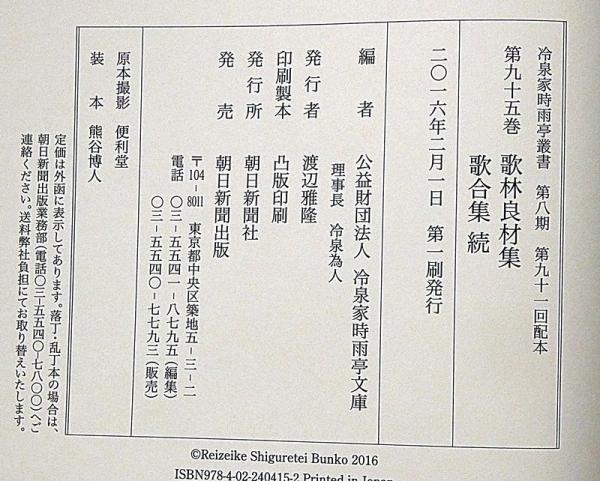 冷泉家時雨亭叢書　第八期　第九十一回配本
第九十五巻　歌林良材集
歌合集 続
二〇一六年二月一日　第一刷発行
編者　公益財団法人 冷泉家時雨亭文庫
理事長　冷泉為人
発行者　渡辺雅隆
印刷製本　凸版印刷
発行所　朝日新聞社
発売　朝日新聞出版
〒104-8011　東京都中央区築地五-三-二
電話　〇三-五五四一-八七九五（編集）
〇三-五五四〇-七七九三（販売）
原本撮影　便利堂
装本　熊谷博人
定価は外函に表示してあります。落丁・乱丁本の場合は、
朝日新聞出版業務部（電話〇三-五五四〇-七八〇〇）へご
連絡ください。送料弊社負担にてお取り替えいたします。
©Reizeike Shiguretei Bunko 2016
ISBN978-4-02-240415-2 Printed in Japan